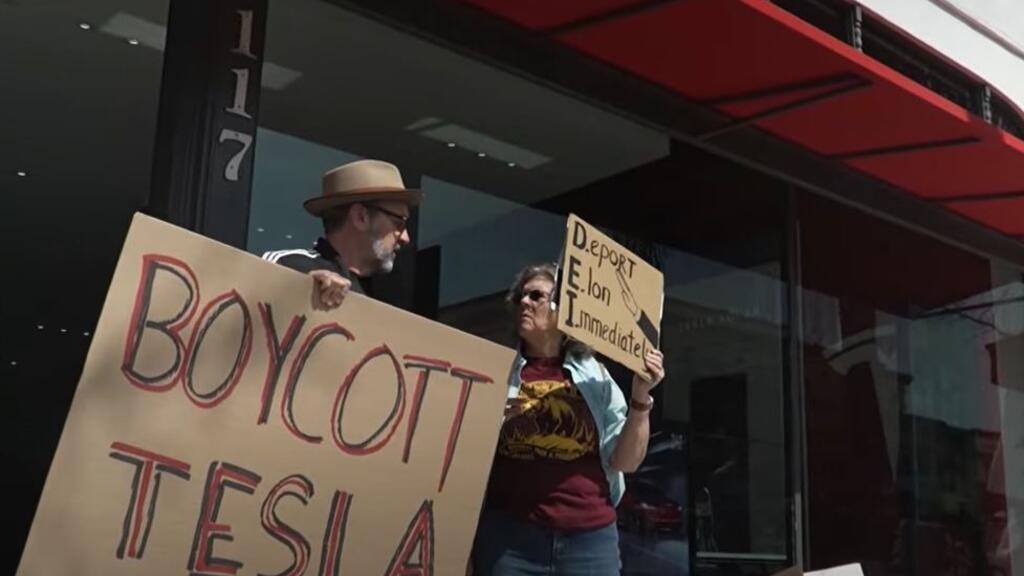 117
BOYCOTT
TESLA
D.eport
E.lon
I.mmediately